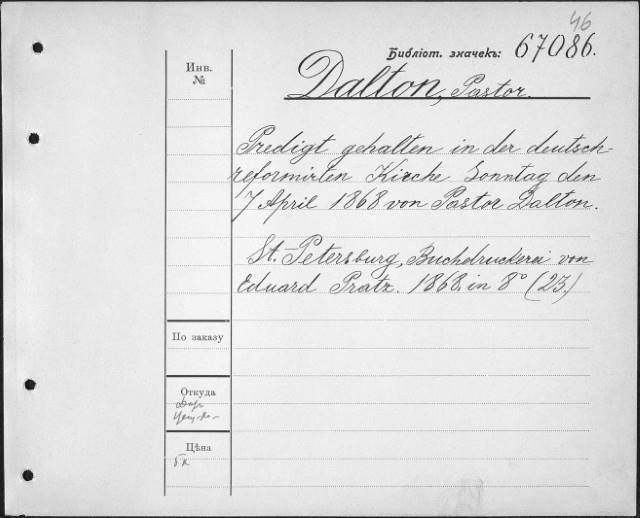 46
Библіот. значекъ: 67086.
Инв.
№
Dalton, Pastor.
Predigt gehalten in der deutsch-
reformirten Kirche Sonntag den
7 April 1868 von Pastor Dalton.
St. Petersburg, Buchdruckerei von
Eduard Pratz. 1868. in 8° (23.)
По заказу
Откуда
Цѣна